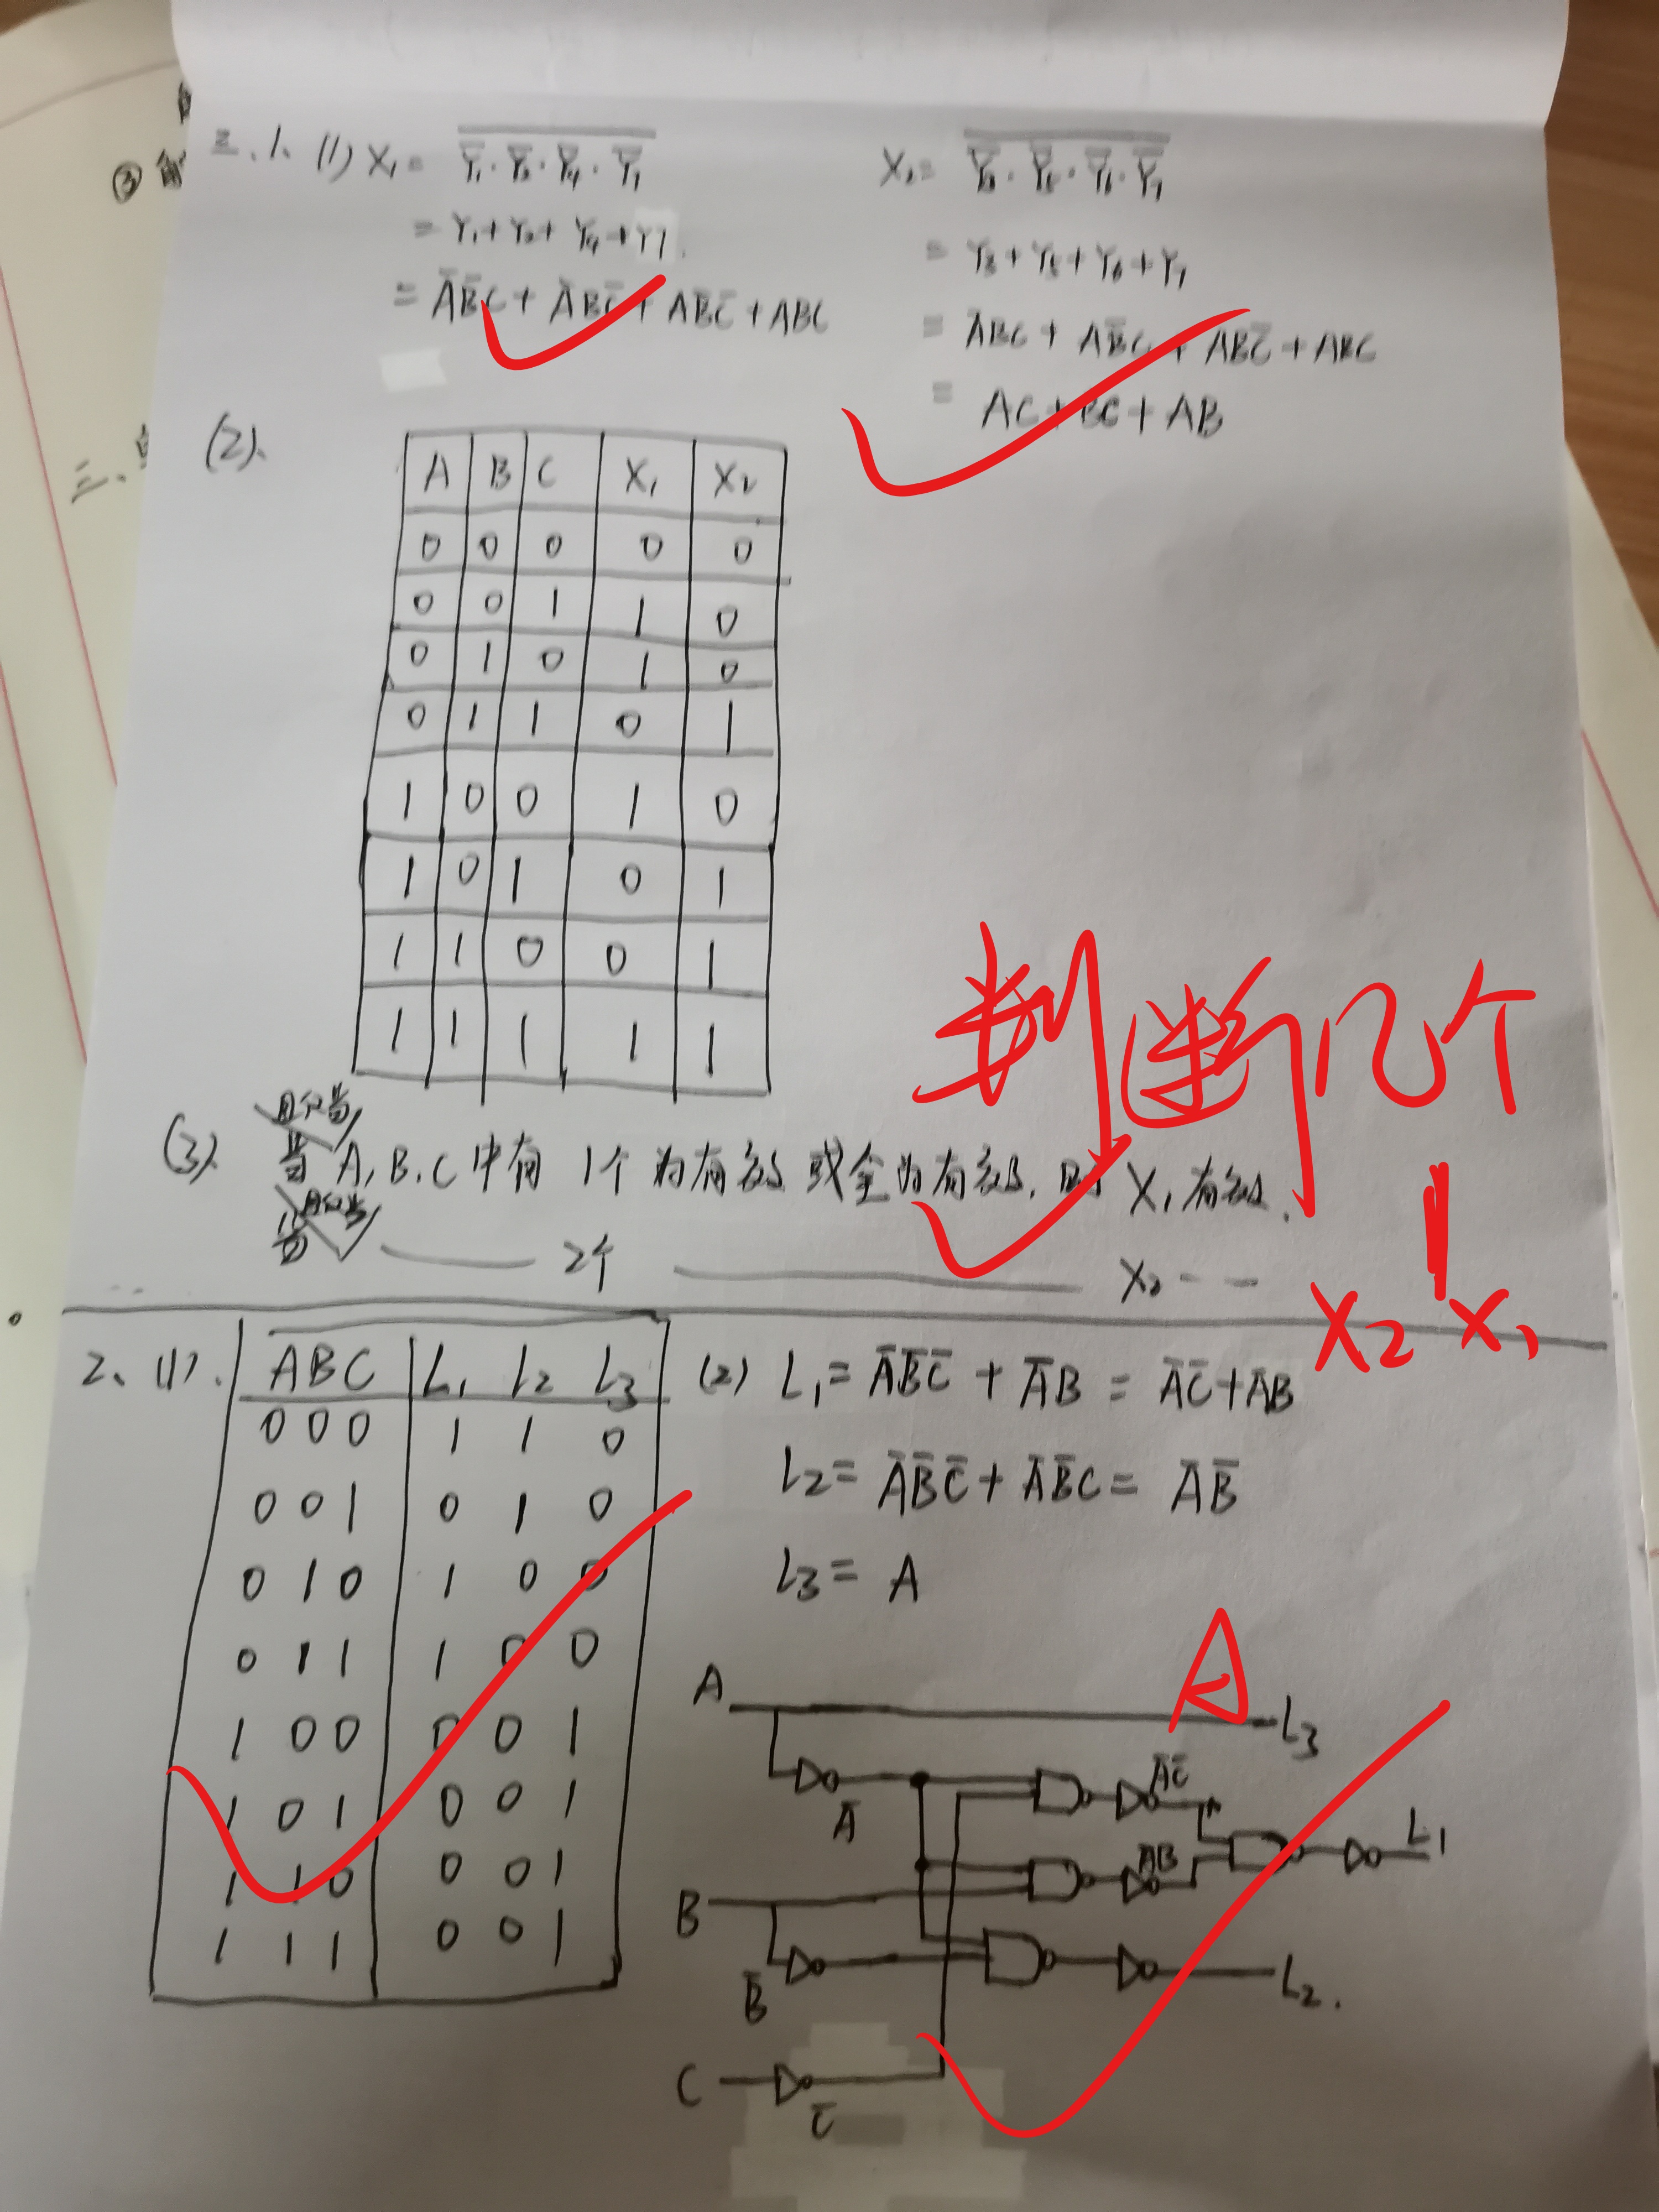 三、1、(1) X₁= \overline{Ȳ₁·Ȳ₂·Ȳ₄·Ȳ₇}
= Y₁+Y₂+Y₄+Y7.
= A̅B̅C+A̅BC̅+AB̅C̅+ABC
X₂= \overline{Ȳ₃·Ȳ₅·Ȳ₆·Ȳ₇}
= Y₃+Y₅+Y₆+Y₇
= A̅BC+AB̅C+ABC̅+ABC
= AC+BC+AB
(2)、
A B C X₁ X₂
0 0 0 0 0
0 0 1 1 0
0 1 0 1 0
0 1 1 0 1
1 0 0 1 0
1 0 1 0 1
1 1 0 0 1
1 1 1 1 1
判断几个1
X₂ X₁
(3)、 当A,B,C中有1个为有效或全为有效,则X₁有效.
当 —— 2个 —— X₂ - -
2、(1)、
ABC L₁ L₂ L₃
000 1 1 0
001 0 1 0
010 1 0 0
011 1 0 0
100 0 0 1
101 0 0 1
110 0 0 1
111 0 0 1
(2) L₁= A̅B̅C̅+A̅B = A̅C̅+A̅B
L₂= A̅B̅C̅+A̅B̅C= A̅B̅
L₃= A
A L₃
A̅ A̅C̅
L₁
B A̅B
B̅ L₂.
C C̅
③
三、